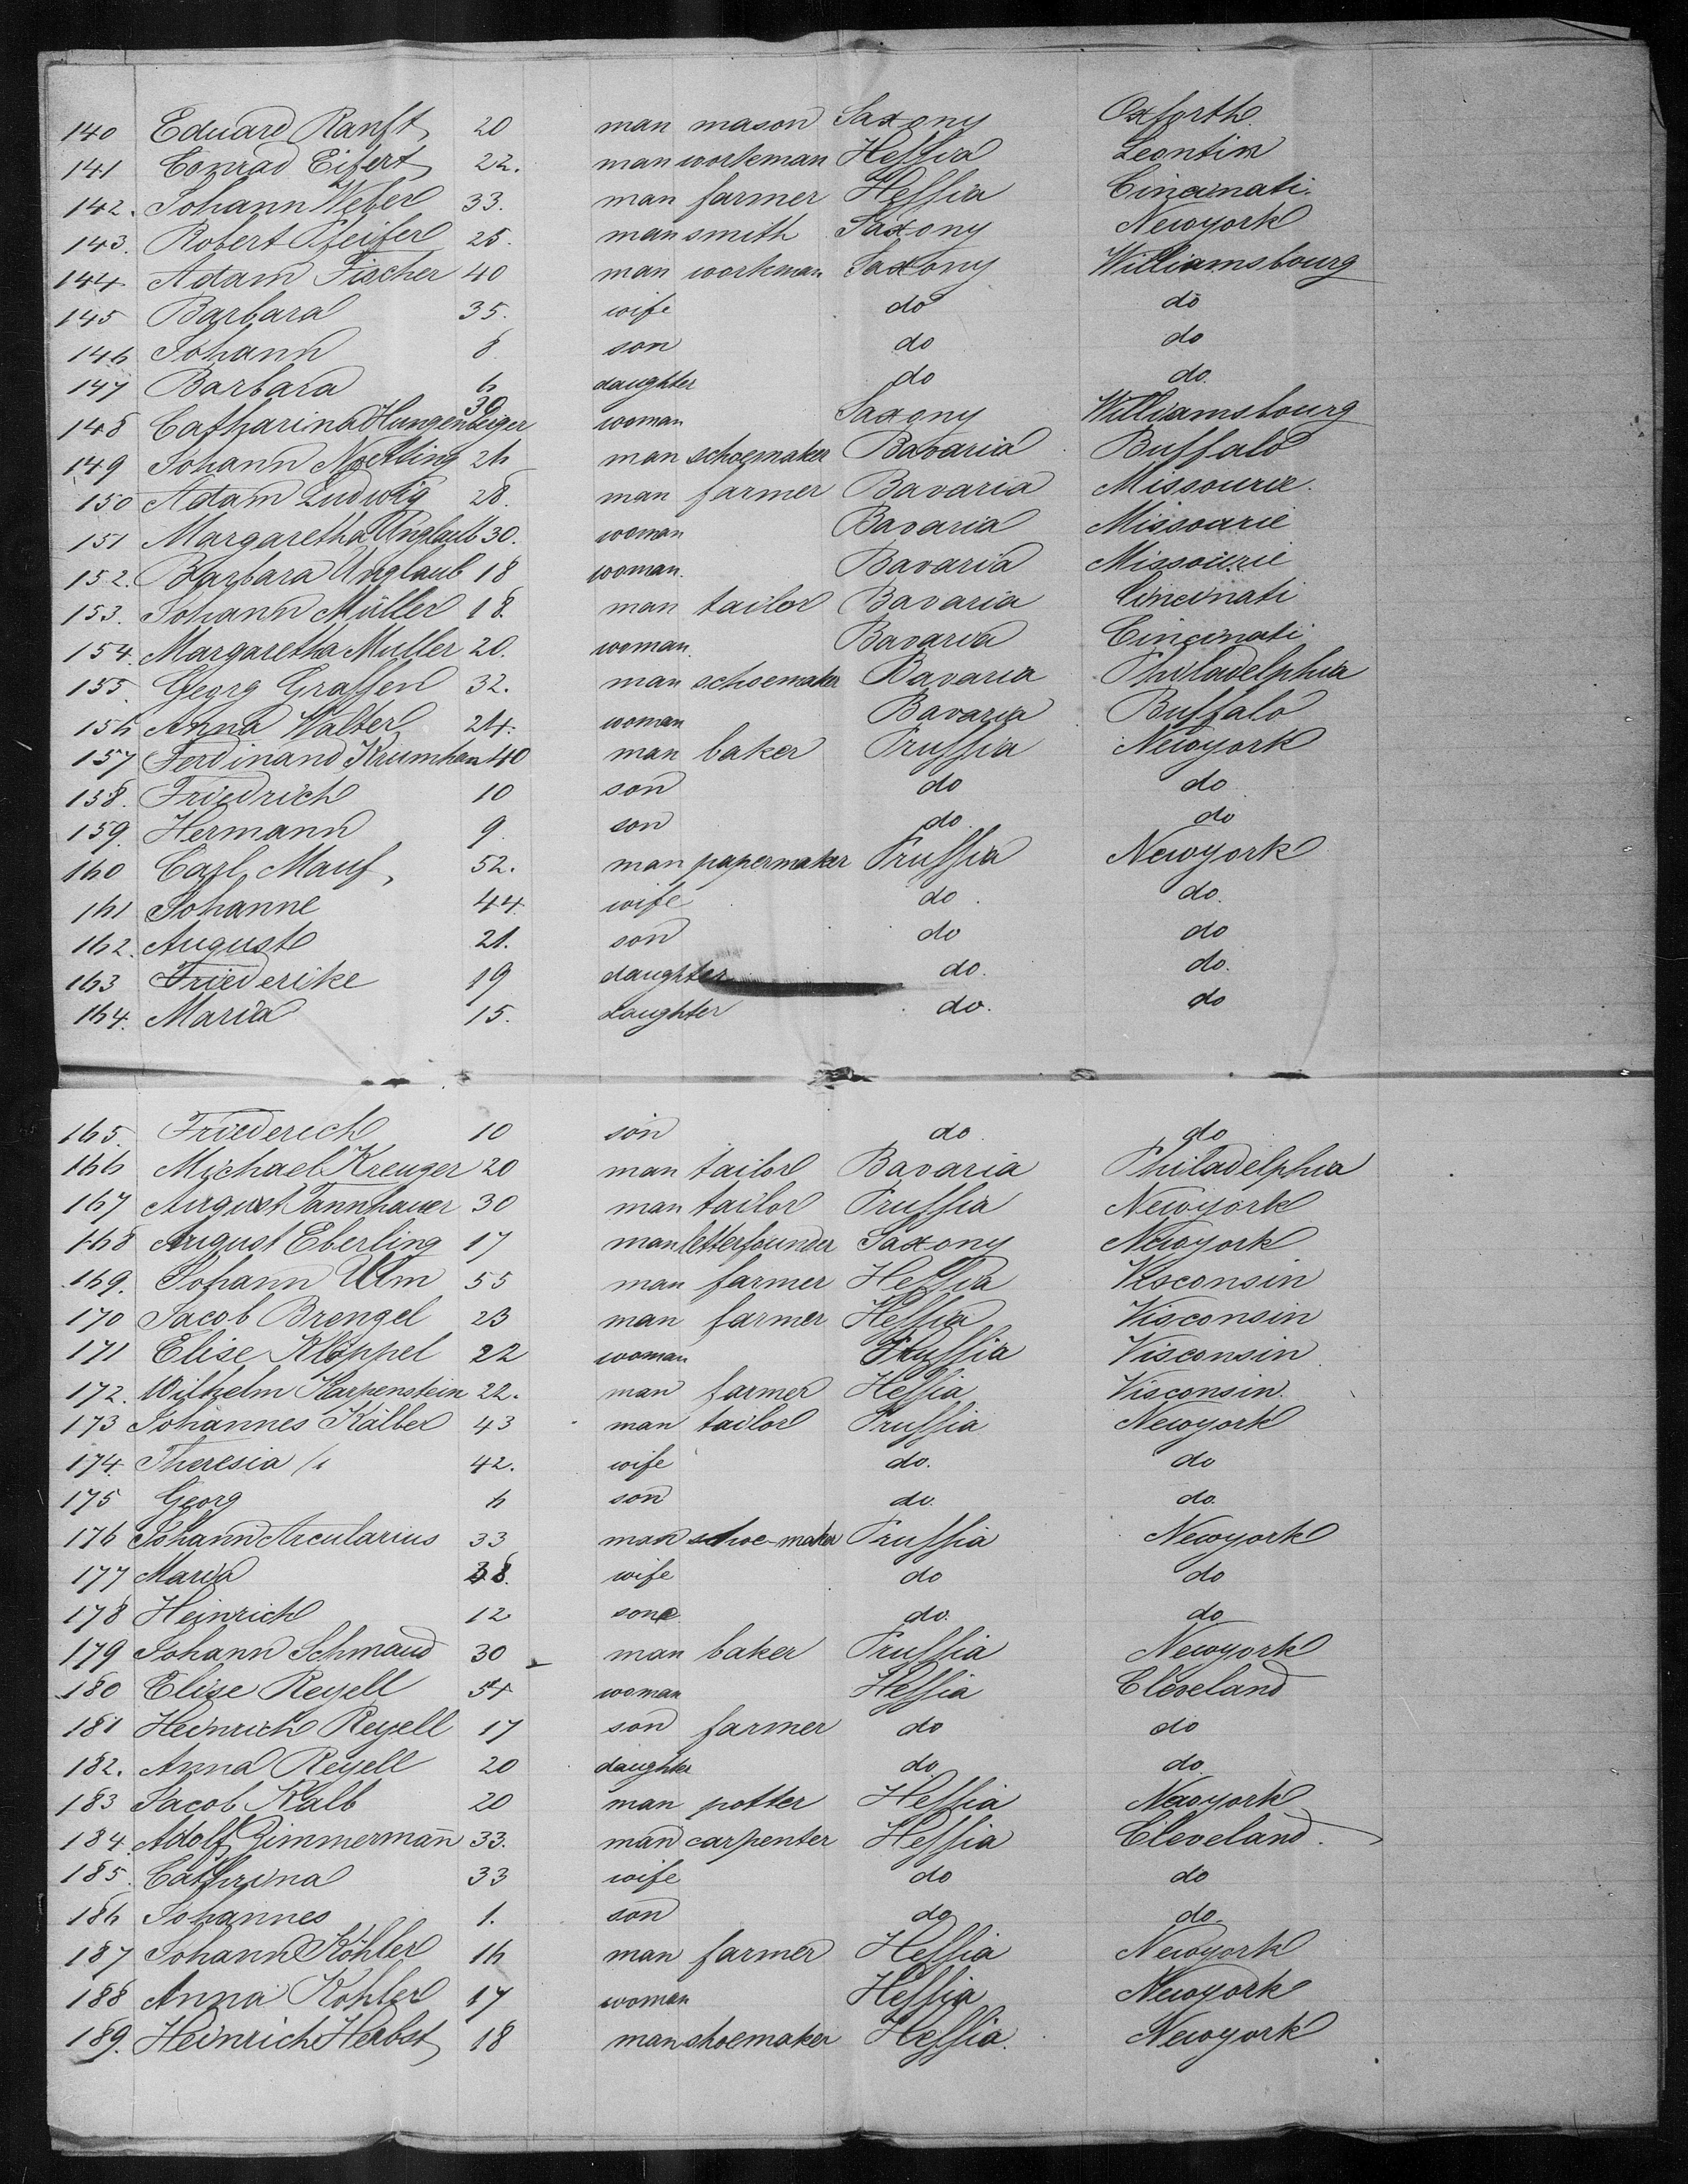 140 Eduard Ranft 20 man mason Saxony Oxforth
141 Conrad Eifert 22. man workman Hessia
142. Johann Weber 33. man farmer Hessia Cincinati.
143. Robert Pfeifer 25. man smith Saxony Newyork
144 Adam Fischer 40 man workman Saxony Williamsbourg
145 Barbara 35. wife do do
146 Johann 8 son do do
147 Barbara 6 daughter do do.
148 Catharina Hungenberger 30 woman Saxony Williamsbourg
149 Johann Noetling 26 man schoemaker Bavaria Buffalo
150 Adam Ludwig 28. man farmer Bavaria Missourie.
151 Margaretha Unglaub 30. woman Bavaria Missourie
152. Barbara Unglaub 18 woman. Bavaria Missourie
153. Johann Müller 18. man tailor Bavaria Cincinati
154. Margaretha Muller 20. woman. Bavaria Cincinati
155. Georg Grassen 32. man schoemaker Bavaria Philadelphia
156 Anna Walter 24. woman Bavaria Buffalo
157 Ferdinand Krumhan 40 man baker Prussia Newyork
158. Friedrich 10 son do do
159. Hermann 9. son do. do
160 Carl Mauf 52. man papermaker Prussia Newyork
161 Johanne 44. wife do. do.
162. August 21. son do do
163 Friederike 19 daughter do. do.
164. Maria 15. daughter do. do
165. Friederich 10 son do. do
166 Michael Kreuzer 20 man tailor Bavaria Philadelphia
167 August Tannhauer 30 man tailor Prussia Newyork
168 August Eberling 17 man letterfounder Saxony Newyork
169. Johann Ulm 55 man farmer Hessia Visconsin
170 Jacob Brengel 23 man farmer Hessia Visconsin
171 Elise Klöppel 22 woman Prussia Visconsin
172. Wilhelm Karpenstein 22. man farmer Hessia Visconsin.
173 Johannes Kälber 43 man tailor Prussia Newyork
174 Theresia 42. wife do. do
175 Georg 6 son do. do.
176 Johann Arcularius 33 man schoe-maker Prussia Newyork
177 Maria 38. wife do do
178 Heinrich 12 sone do. do
179 Johann Schmaud 30 man baker Prussia Newyork
180 Elise Reyell 54 woman Hessia Cleveland
181 Heinrich Reyell 17 son farmer do do
182. Anna Reyell 20 daughter do. do.
183 Jacob Kalb 20 man potter Hessia Newyork
184. Adolf Zimmermann 33. man carpenter Hessia Cleveland.
185. Cathrina 33 wife do do
186 Johannes 1. son do do
187 Johann Köhler 16 man farmer Hessia Newyork
188 Anna Köhler 17 woman Hessia Newyork
189. Heinrich Herbst 18 man shoemaker Hessia. Newyork